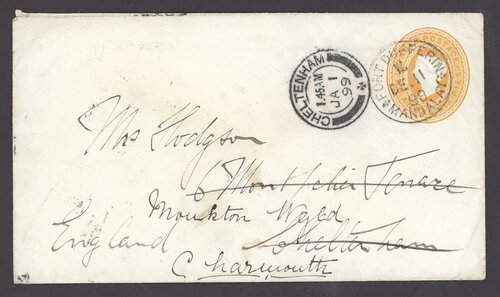 CHELTENHAM
1.45AM
JA 1
99
FORT DUFFERIN
DE 11
98
MANDALAY
Mrs Hodgson
6 Montpelier Terrace
Moukton Wyed
England
Cheltenham
Charmouth